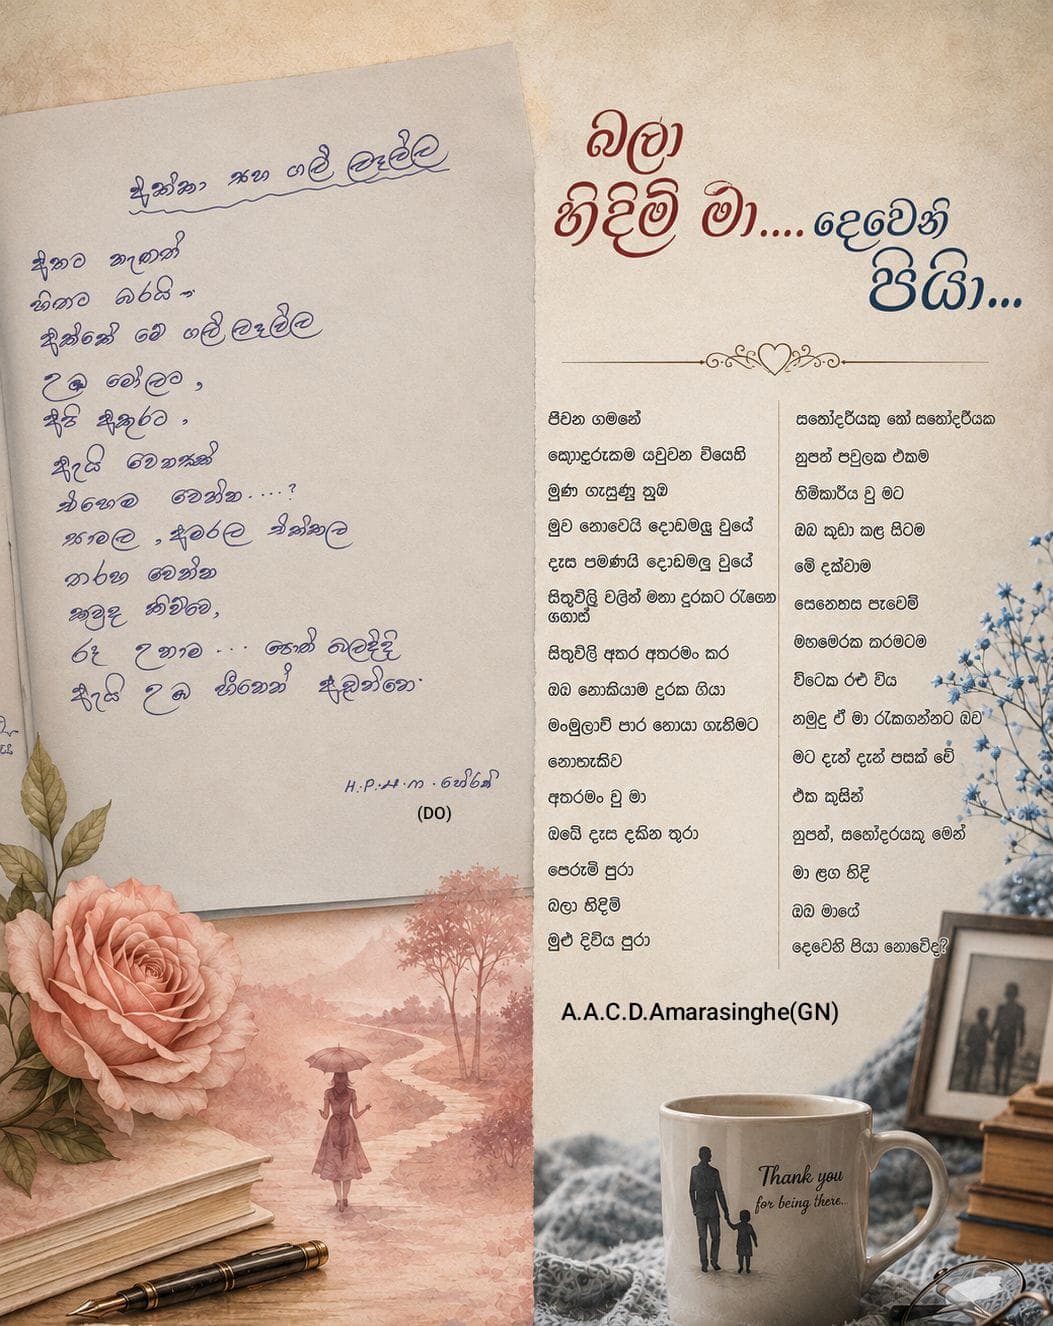 අක්කා සහ ගල් ලෑල්ල
අතට තැනත්
හිතට බරයි
අක්කේ මේ ගල් ලෑල්ල
උඹ මෝලට,
අපි අකුරට,
ඇයි වෙනසක්
එහෙම වෙන්න....?
සාමල, අමරල එක්කල
තරහ වෙන්න
කවුද කිව්වෙ,
රෑ උනාම ... පොත් බලද්දි
ඇයි උඹ හීනෙන් ඇඬුන්නෙ
H.P. හේරත්
(DO)
බලා
හිදිමි මා....දෙවෙනි
පියා...
ජීවන ගමනේ
කොදුරුකම යවුවන වියෙහි
මුණ ගැසුණු නුඹ
මුව නොවෙයි දොඩමලු වුයේ
දෑස පමණයි දොඩමලු වුයේ
සිතුවිලි වලින් මහා දුරකට රැගෙන
ගගාස්
සිතුවිලි අතර අතරමං කර
ඔබ නොකියාම දුරක ගියා
මංමුලාවී පාර සොයා ගැනිමට
නොහැකිව
අතරමං වු මා
ඔබේ දෑස දකින තුරා
පෙරුම් පුරා
බලා හිදිමි
මුළු දිවිය පුරා
සහෝදරියකු හෝ සහෝදරියක
නුපන් පවුලක එකම
හිමිකාරිය වු මට
ඔබ කුඩා කළ සිටම
මේ දක්වාම
සෙනෙහස පෑවෙමි
මහමෙරක තරමටම
විටෙක රළු විය
නමුදු ඒ මා රැකගන්නට බව
මට දැන් දැන් පසක් වේ
එක කුසින්
නුපන්, සහෝදරයකු මෙන්
මා ළග හිදි
ඔබ මාගේ
දෙවෙනි පියා නොවේද?
A.A.C.D.Amarasinghe(GN)
Thank you
for being there...